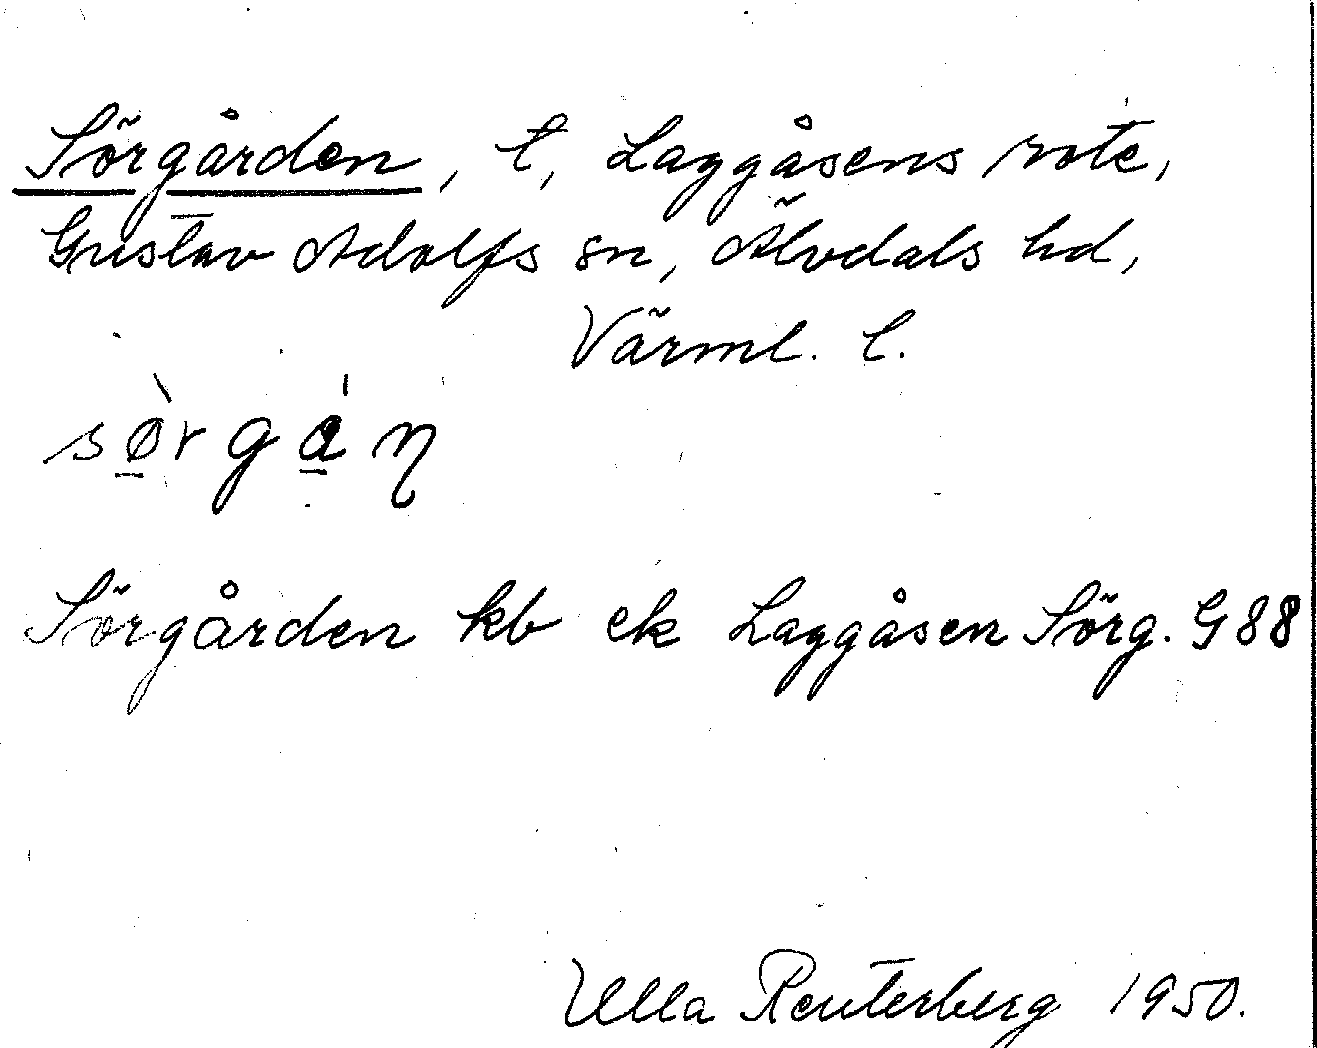 Sörgården, t, Laggåsens rote,
Gustav Adolfs sn, Älvdals hd,
Värml. l.
sø̀rgá̱ŋ
Sörgården kb ek Laggåsen Sörg. G 88
Ulla Reuterberg 1950.